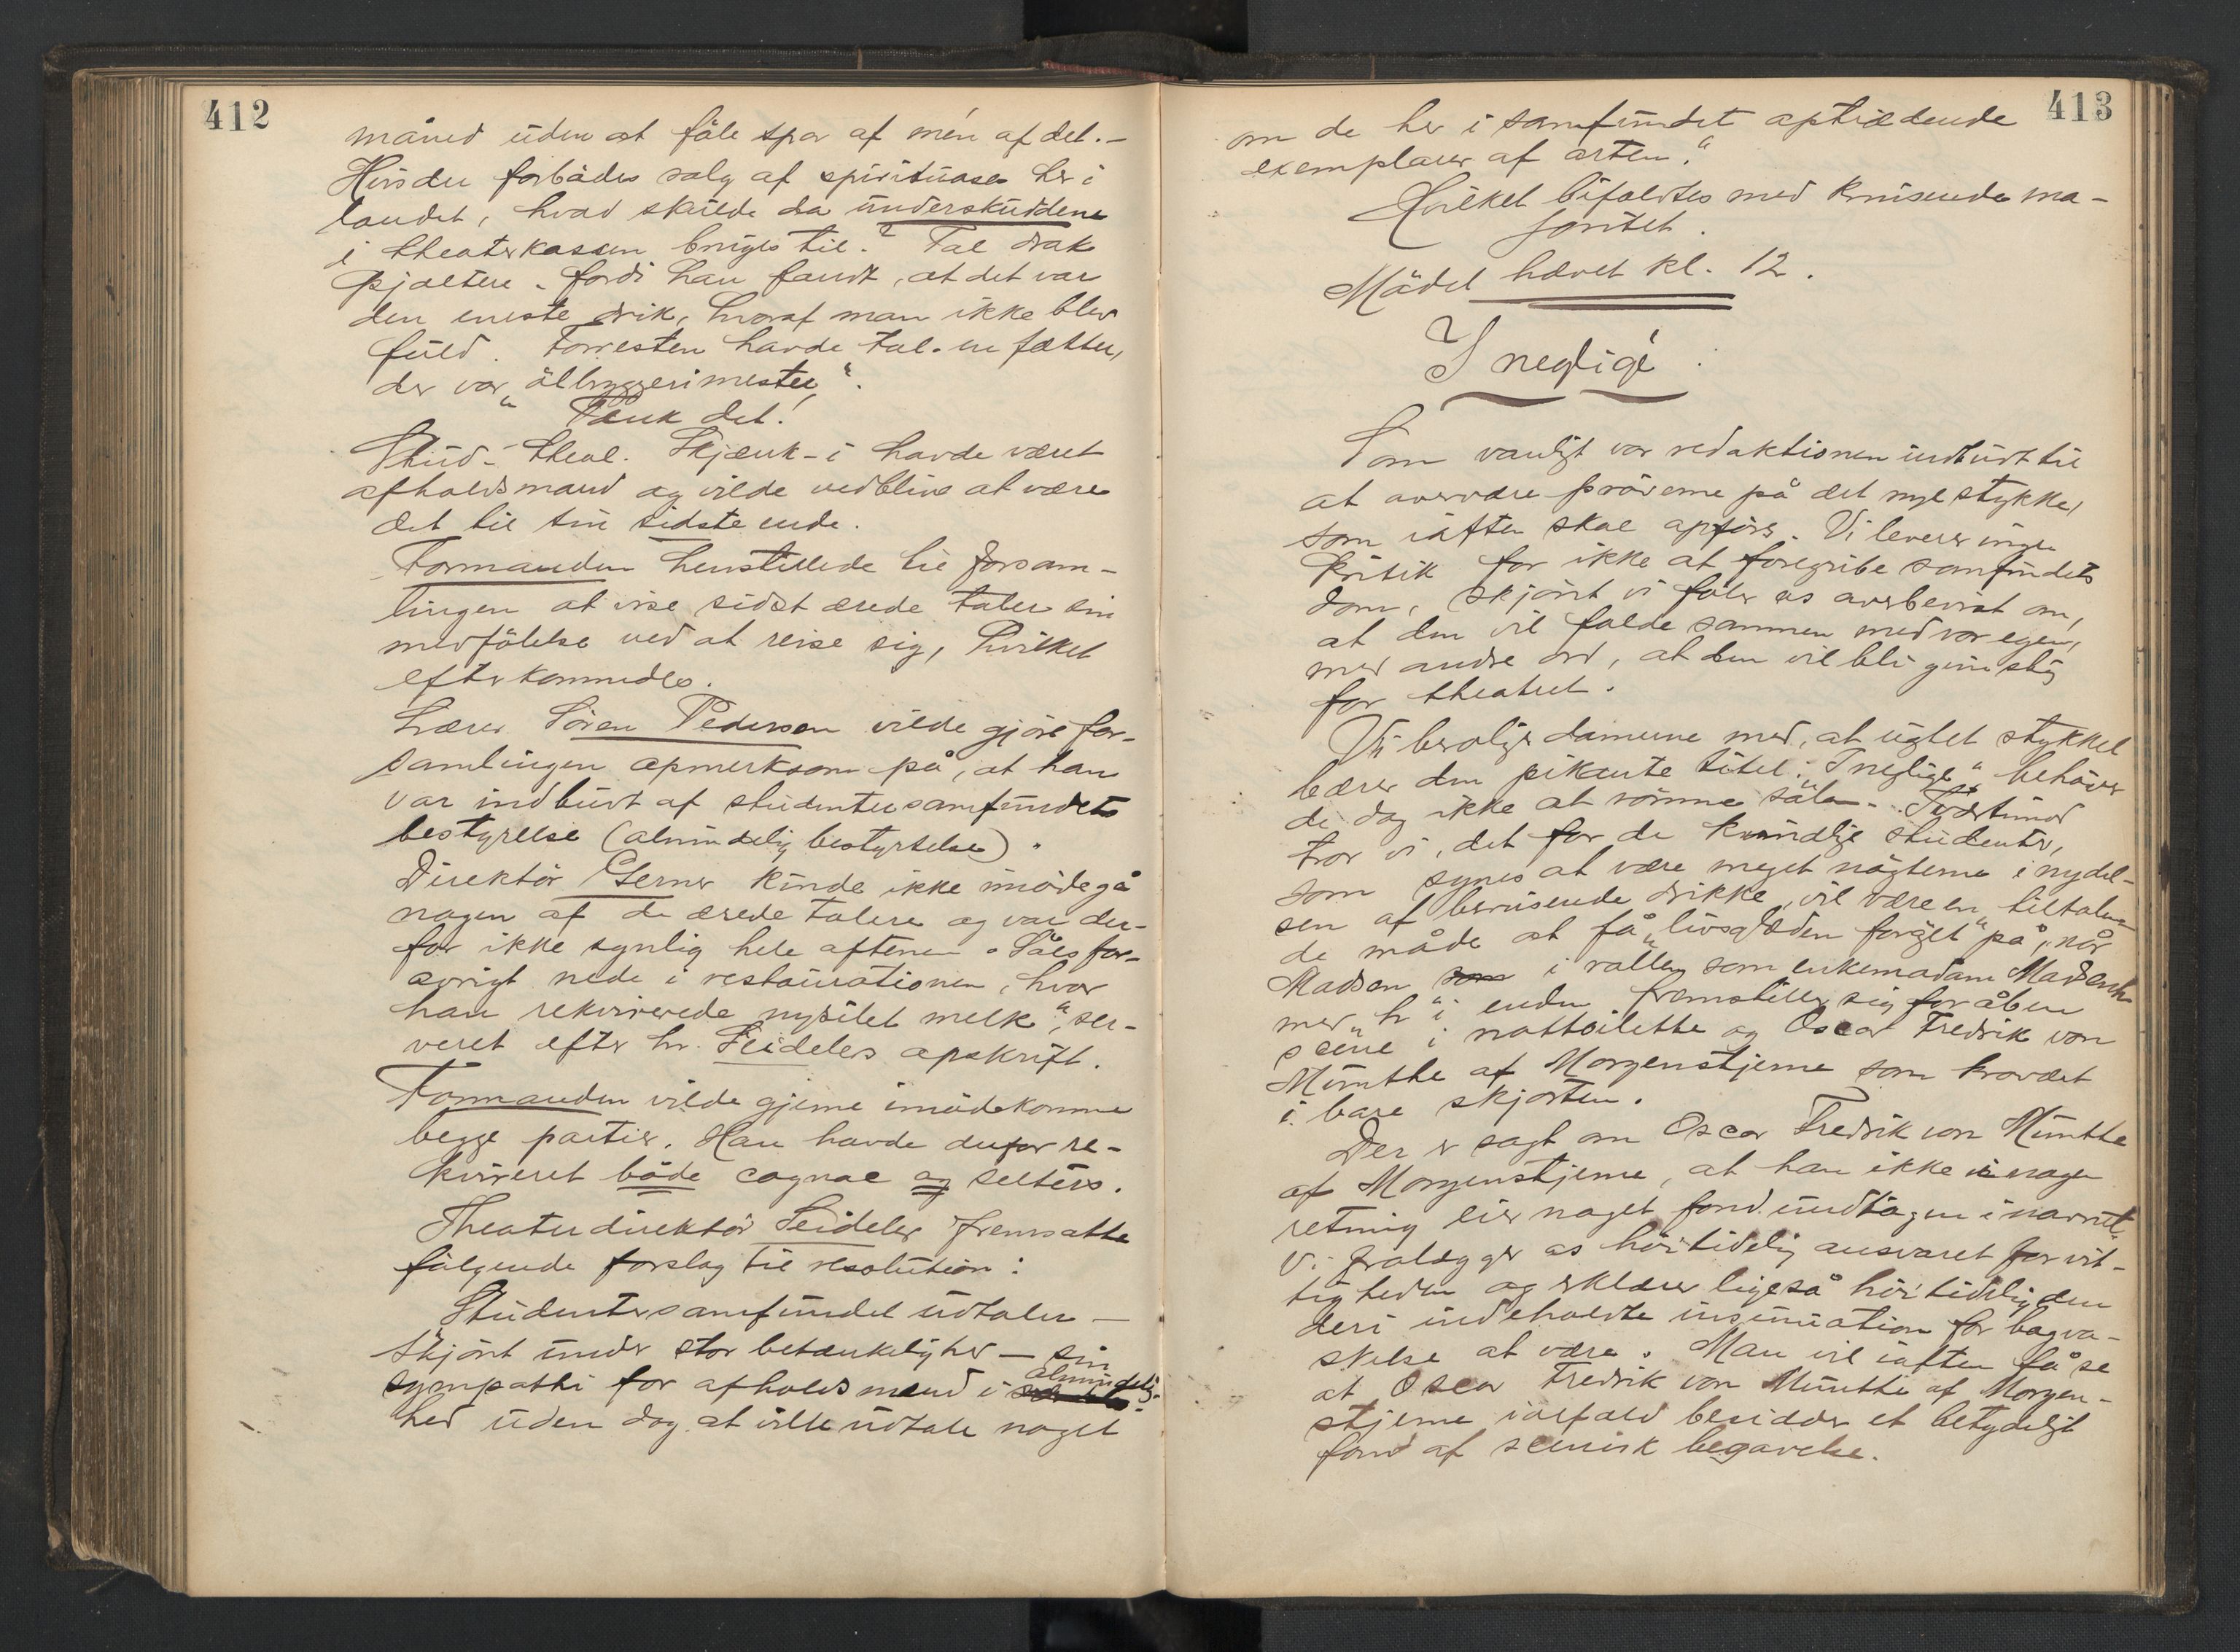 412
måned uden at føle spor af mén af det. —
Hvis der forbødes salg af spirituosa her i
landet, hvad skulde da underskuddene
i theaterkassen bruges til? Tal. drak
pjoltere – fordi han fandt, at det var
den eneste drik, hvoraf man ikke blev
fuld. Forresten havde tal. en fætter,
der var „ølbryggerimester“.
„Tænk det!
Stud. theol. Skjænk-i havde været
afholdsmand og vilde vedblive at være
det til sin sidste ende.
Formanden henstillede til forsam-
lingen at vise sidst ærede taler sin
medfølelse ved at reise sig, hvilket
efterkommedes.
Lærer Sören Pedersen vilde gjøre for-
samlingen opmerksom på, at han
var indbudt af studentersamfundets
bestyrelse (almindelig bestyrtelse).
Direktör Gerner kunde ikke imødegå
nogen af de ærede talere og var der-
for ikke synlig hele aftenen. Såes for-
øvrigt nede i restaurationen, hvor
han rekvirerede „nysilet melk“, ser-
veret efter hr. Seidelers opskrift.
Formanden vilde gjerne imødekomme
begge partier. Han havde derfor re-
kvireret både cognac og selters.
Theaterdirektör Seideler fremsatte
følgende forslag til resolution:
Studentersamfundet udtaler —
skjønt under stor betænkelighed — sin
sympathi for afholdsmænd i almindelig-
hed uden dog at ville udtale noget
413
om de her i samfundet optrædende
exemplarer af arten.“
Hvilket bifaldtes med knusende ma-
joritet.
Mödet hævet kl. 12.
I negligé.
Som vanligt var redaktionen indbudt til
at overvære prøverne på det nye stykke,
som iaften skal opføres. Vi leverer ingen
kritik for ikke at foregribe samfundets
dom, skjønt vi føler os overbevist om,
at den vil falde sammen med vor egen,
med andre ord, at den vil bli gunstig
for theatret.
Vi beroliger damerne med, at uagtet stykket
bærer den pikante titel: „I negligé“ behøver
de dog ikke at rømme salen. Tvertimod
tror vi, det for de kvindlige studenter,
som synes at være meget nøgterne i nydel-
sen af berusende drikke, vil være en tiltalen-
de måde at få „livsglæden forøget“ på, når
Madsen i rollen som enkemadam Madsenh
med „h“ i enden fremstiller sig for åben
scene i nattoilette og Oscar Fredrik von
Munthe af Morgenstjerne som kravder
i bare skjorten.
Der er sagt om Oscar Fredrik von Munthe
af Morgenstjerne, at han ikke i nogen
retning eier noget fond undtagen i navnet.
Vi fralægger os høitidelig ansvaret for vit-
tigheden og erklærer ligeså høitidelig den
deri indeholdte insinuation for bagva-
skelse at være. Man vil iaften få se
at Oscar Fredrik von Munthe af Morgen-
stjerne ialfald besidder et betydeligt
fond af scenisk begavelse.